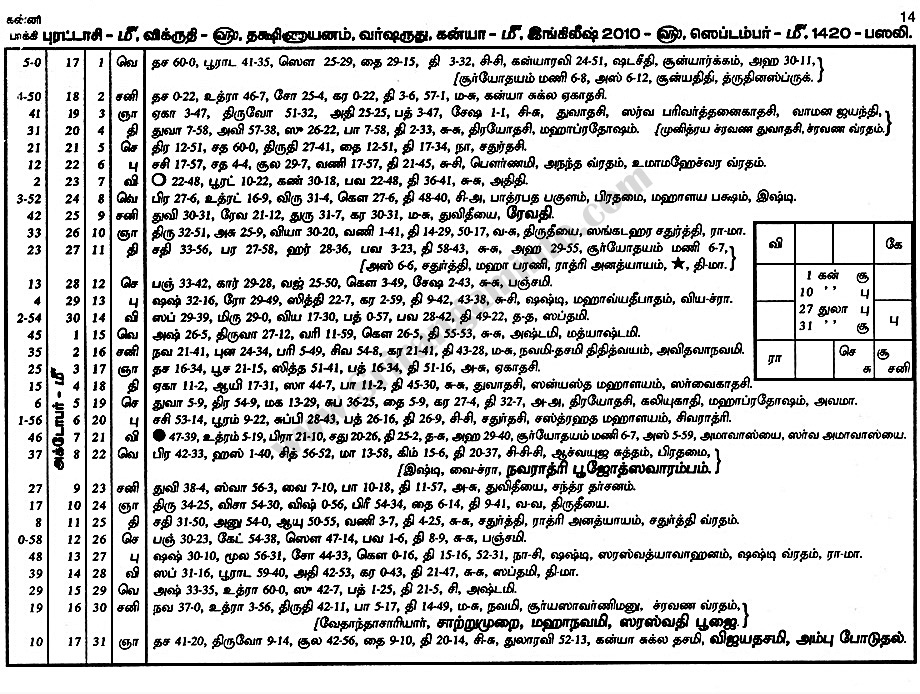 கன்னி 14
பாக்கி புரட்டாசி - மீ, விக்ருதி - ௵, தக்ஷிணாயனம், வர்ஷருது, கன்யா - மீ, இங்கிலீஷ் 2010 - ௵, ஸெப்டம்பர் - மீ. 1420 - பஸலி.
5-0 17 1 வெ தச 60-0, பூராட 41-35, ஸௌ 25-29, தை 29-15, தி 3-32, சி-சி, கன்யாரவி 24-51, ஷடசீதி, சூன்யார்க்கம், அஹ 30-11,
[சூர்யோதயம் மணி 6-8, அஸ் 6-12, சூன்யதிதி, த்ருதினஸ்ப்ருக்.
4-50 18 2 சனி தச 0-22, உத்ரா 46-7, சோ 25-4, கர 0-22, தி 3-6, 57-1, ம-சு, கன்யா சுக்ல ஏகாதசி.
41 19 3 ஞா ஏகா 3-47, திருவோ 51-32, அதி 25-25, பத் 3-47, சேஷ 1-1, சி-சு, துவாதசி, ஸர்வ பரிவர்த்தனைகாதசி, வாமன ஜயந்தி,
31 20 4 தி துவா 7-58, அவி 57-38, ஸு 26-22, பா 7-58, தி 2-33, சு-சு, திரயோதசி, மஹாப்ரதோஷம். [முனித்ரய ச்ரவண துவாதசி, ச்ரவண வ்ரதம்.
21 21 5 செ திர 12-51, சத 60-0, திருதி 27-41, தை 12-51, தி 17-34, நா, சதுர்தசி.
12 22 6 பு சசி 17-57, சத 4-4, சூல 29-7, வணி 17-57, தி 21-45, சு-சி, பௌர்ணமி, அநந்த வ்ரதம், உமாமஹேச்வர வ்ரதம்.
2 23 7 வி 22-48, பூரட் 10-22, கண் 30-18, பவ 22-48, தி 36-41, சு-சு, அதிதி.
3-52 24 8 வெ பிர 27-6, உத்ரட் 16-9, விரு 31-4, கௌ 27-6, தி 48-40, சி-அ, பாத்ரபத பகுளம், பிரதமை, மஹாளய பக்ஷம், இஷ்டி.
42 25 9 சனி துவி 30-31, ரேவ 21-12, துரு 31-7, கர 30-31, ம-சு, துவிதீயை, ரேவதி.
33 26 10 ஞா திரு 32-51, அசு 25-9, வியா 30-20, வணி 1-41, தி 14-29, 50-17, வ-சு, திருதீயை, ஸங்கடஹர சதுர்த்தி, ரா-மா.
23 27 11 தி சதி 33-56, பர 27-58, ஹர் 28-36, பவ 3-23, தி 58-43, சு-சு, அஹ 29-55, சூர்யோதயம் மணி 6-7,
[அஸ் 6-6, சதுர்த்தி, மஹா பரணி, ராத்ரி அனத்யாயம், ★, தி-மா.
13 28 12 செ பஞ் 33-42, கார் 29-28, வஜ் 25-50, கௌ 3-49, சேஷ 2-43, சு-சு, பஞ்சமி.
4 29 13 பு ஷஷ் 32-16, ரோ 29-49, ஸித்தி 22-7, கர 2-59, தி 9-42, 43-38, சு-சி, ஷஷ்டி, மஹாவ்யதீபாதம், விய-ச்ரா.
2-54 30 14 வி ஸப் 29-39, மிரு 29-0, விய 17-30, பத் 0-57, பவ 28-42, தி 49-22, த-த, ஸப்தமி.
அக்டோபர் - மீ
45 1 15 வெ அஷ் 26-5, திருவா 27-12, வரி 11-59, கௌ 26-5, தி 55-53, சு-சு, அஷ்டமி, மத்யாஷ்டமி.
35 2 16 சனி நவ 21-41, புன 24-34, பரி 5-49, சிவ 54-8, கர 21-41, தி 43-28, ம-சு, நவமி-தசமி திதித்வயம், அவிதவாநவமி.
25 3 17 ஞா தச 16-34, பூச 21-15, ஸித்த 51-41, பத் 16-34, தி 51-16, அ-சு, ஏகாதசி.
15 4 18 தி ஏகா 11-2, ஆயி 17-31, ஸா 44-7, பா 11-2, தி 45-30, சு-சு, துவாதசி, ஸன்யஸ்த மஹாளயம், ஸர்வைகாதசி.
6 5 19 செ துவா 5-9, திர 54-9, மக 13-29, சுப 36-25, தை 5-9, கர 27-4, தி 32-7, அ-அ, திரயோதசி, கலியுகாதி, மஹாப்ரதோஷம், அவமா.
1-56 6 20 பு சசி 53-14, பூரம் 9-22, சுப்பி 28-43, பத் 26-16, தி 26-9, சி-சி, சதுர்தசி, சஸ்த்ரஹத மஹாளயம், சிவராத்ரி.
46 7 21 வி 47-39, உத்ரம் 5-19, பிரா 21-10, சது 20-26, தி 25-2, த-சு, அஹ 29-40, சூர்யோதயம் மணி 6-7, அஸ் 5-59, அமாவாஸ்யை, ஸர்வ அமாவாஸ்யை.
37 8 22 வெ பிர 42-33, ஹஸ் 1-40, சித் 56-52, மா 13-58, கிம் 15-6, தி 20-37, சி-சி-சி, ஆச்வயுஜ சுத்தம், பிரதமை,
[இஷ்டி, வை-ச்ரா, நவராத்ரி பூஜோத்ஸவாரம்பம்.
27 9 23 சனி துவி 38-4, ஸ்வா 56-3, வை 7-10, பா 10-18, தி 11-57, அ-சு, துவிதீயை, சந்த்ர தர்சனம்.
17 10 24 ஞா திரு 34-25, விசா 54-30, விஷ் 0-56, பிரீ 54-34, தை 6-14, தி 9-41, வ-வ, திருதீயை.
8 11 25 தி சதி 31-50, அனு 54-0, ஆயு 50-55, வணி 3-7, தி 4-25, சு-சு, சதுர்த்தி, ராத்ரி அனத்யாயம், சதுர்த்தி வ்ரதம்.
0-58 12 26 செ பஞ் 30-23, கேட் 54-38, ஸௌ 47-14, பவ 1-6, தி 8-9, சு-சு, பஞ்சமி.
48 13 27 பு ஷஷ் 30-10, மூல 56-31, சோ 44-33, கௌ 0-16, தி 15-16, 52-31, நா-சி, ஷஷ்டி, ஸரஸ்வத்யாவாஹனம், ஷஷ்டி வ்ரதம், ரா-மா.
39 14 28 வி ஸப் 31-16, பூராட 59-40, அதி 42-53, கர 0-43, தி 21-47, சு-சு, ஸப்தமி, தி-மா.
29 15 29 வெ அஷ் 33-35, உத்ரா 60-0, ஸு 42-7, பத் 1-25, தி 21-5, சி, அஷ்டமி.
19 16 30 சனி நவ 37-0, உத்ரா 3-56, திருதி 42-11, பா 5-17, தி 14-49, ம-சு, நவமி, சூர்யஸாவர்ணிமனு, ச்ரவண வ்ரதம்,
[வேதாந்தாசாரியார், சாற்றுமுறை, மஹாநவமி, ஸரஸ்வதி பூஜை.
10 17 31 ஞா தச 41-20, திருவோ 9-14, சூல 42-56, தை 9-10, தி 20-14, சி-சு, துலாரவி 52-13, கன்யா சுக்ல தசமி, விஜயதசமி, அம்பு போடுதல்.
வி கே
1 கன் சூ
10 ,, பு
27 துலா பு
31 ,, சூ
பு
ரா செ சூ
சு சனி